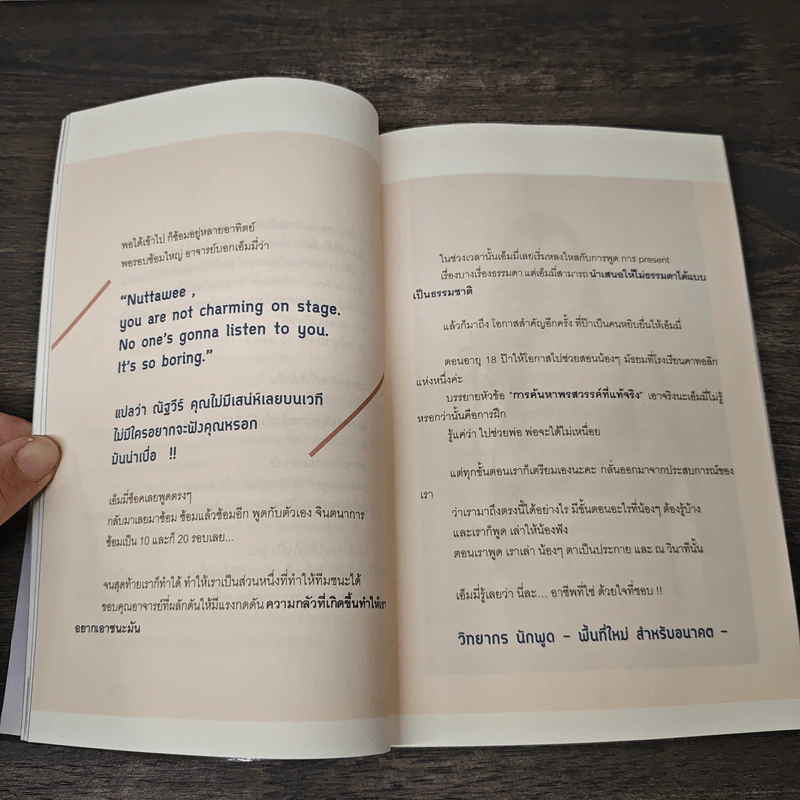 พอได้เข้าไป ก็ซ้อมอยู่หลายอาทิตย์
พอรอบซ้อมใหญ่ อาจารย์บอกเอ็มมี่ว่า
“Nuttawee ,
you are not charming on stage.
No one's gonna listen to you.
It's so boring.”
แปลว่า ณัฐวีร์ คุณไม่มีเสน่ห์เลยบนเวที
ไม่มีใครอยากจะฟังคุณหรอก
มันน่าเบื่อ !!
เอ็มมี่ช็อคเลยพูดตรงๆ
กลับมาเลยมาซ้อม ซ้อมแล้วซ้อมอีก พูดกับตัวเอง จินตนาการ
ซ้อมเป็น 10 และก็ 20 รอบเลย...
จนสุดท้ายเราก็ทำได้ ทำให้เราเป็นส่วนหนึ่งที่ทำให้ทีมชนะได้
ขอบคุณอาจารย์ที่ผลักดันให้มีแรงกดดัน ความกลัวที่เกิดขึ้นทำให้เรา
อยากเอาชนะมัน
ในช่วงเวลานั้นเอ็มมี่เลยเริ่มหลงใหลกับการพูด การ present
เรื่องบางเรื่องธรรมดา แต่เอ็มมี่สามารถนำเสนอให้ไม่ธรรมดาได้แบบ
เป็นธรรมชาติ
แล้วก็มาถึง โอกาสสำคัญอีกครั้ง ที่ป๊าเป็นคนหยิบยื่นให้เอ็มมี่
ตอนอายุ 18 ป๊าให้โอกาสไปช่วยสอนน้องๆ มัธยมที่โรงเรียนคาทอลิก
แห่งหนึ่งค่ะ
บรรยายหัวข้อ “การค้นหาพรสวรรค์ที่แท้จริง” เอาจริงนะเอ็มมี่ไม่รู้
หรอกว่านั้นคือการฝึก
รู้แค่ว่า ไปช่วยพ่อ พ่อจะได้ไม่เหนื่อย
แต่ทุกขั้นตอนเราก็เตรียมเองนะคะ กลั่นออกมาจากประสบการณ์ของ
เรา
ว่าเรามาถึงตรงนี้ได้อย่างไร มีขั้นตอนอะไรที่น้องๆ ต้องรู้บ้าง
และเราก็พูด เล่าให้น้องฟัง
ตอนเราพูด เราเล่า น้องๆ ตาเป็นประกาย และ ณ วินาทีนั้น
เอ็มมี่รู้เลยว่า นี่ละ... อาชีพที่ใช่ ด้วยใจที่ชอบ !!
วิทยากร นักพูด - พื้นที่ใหม่ สำหรับอนาคต -